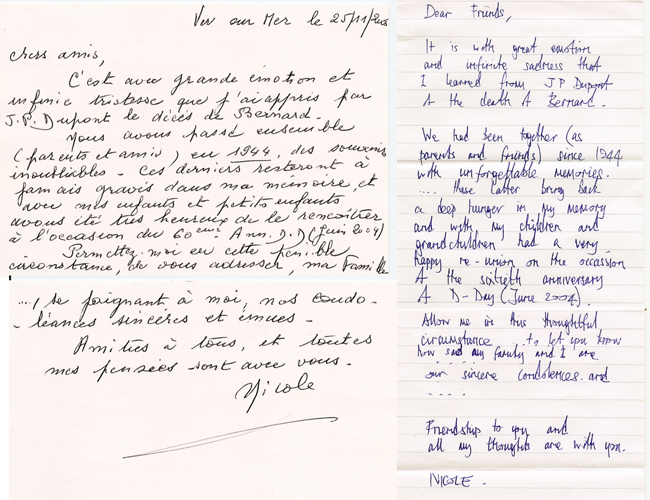 Ver sur Mer le 25/11/
chers amis,
C'est avec grande émotion et
infinie tristesse que j'ai appris par
J.P. Dupont le décès de Bernard.
Nous avons passé ensemble
(parents et amis) en 1944, des souvenirs
inoubliables - Ces derniers resteront à
jamais gravés dans ma mémoire, et
avec mes enfants et petits enfants
avons été très heureux de le rencontrer
à l'occasion du 60ème Ann. D.D (Juin 2004)
Permettez moi en cette pénible
circonstance, de vous adresser, ma famille
...., se joignant à moi, nos condo-
-léances sincères et émues -
Amitiés à tous, et toutes
mes pensées sont avec vous.
Nicole
Dear Friends,
It is with great emotion
and infinite sadness that
I learned from J P Dupont
of the death of Bernard.
We had been together (as
parents and friends) since 1944
with unforgettable memories.
.... these latter bring back
a deep hunger in my memory
and with my children and
grandchildren had a very
happy re-union on the occassion
of the sixtieth anniversary
of D-Day (June 2004).
Allow me in this thoughtful
circumstance to let you know
how sad my family and I are
.... our sincere condolences and
....
Friendship to you and
all my thoughts are with you.
NICOLE -